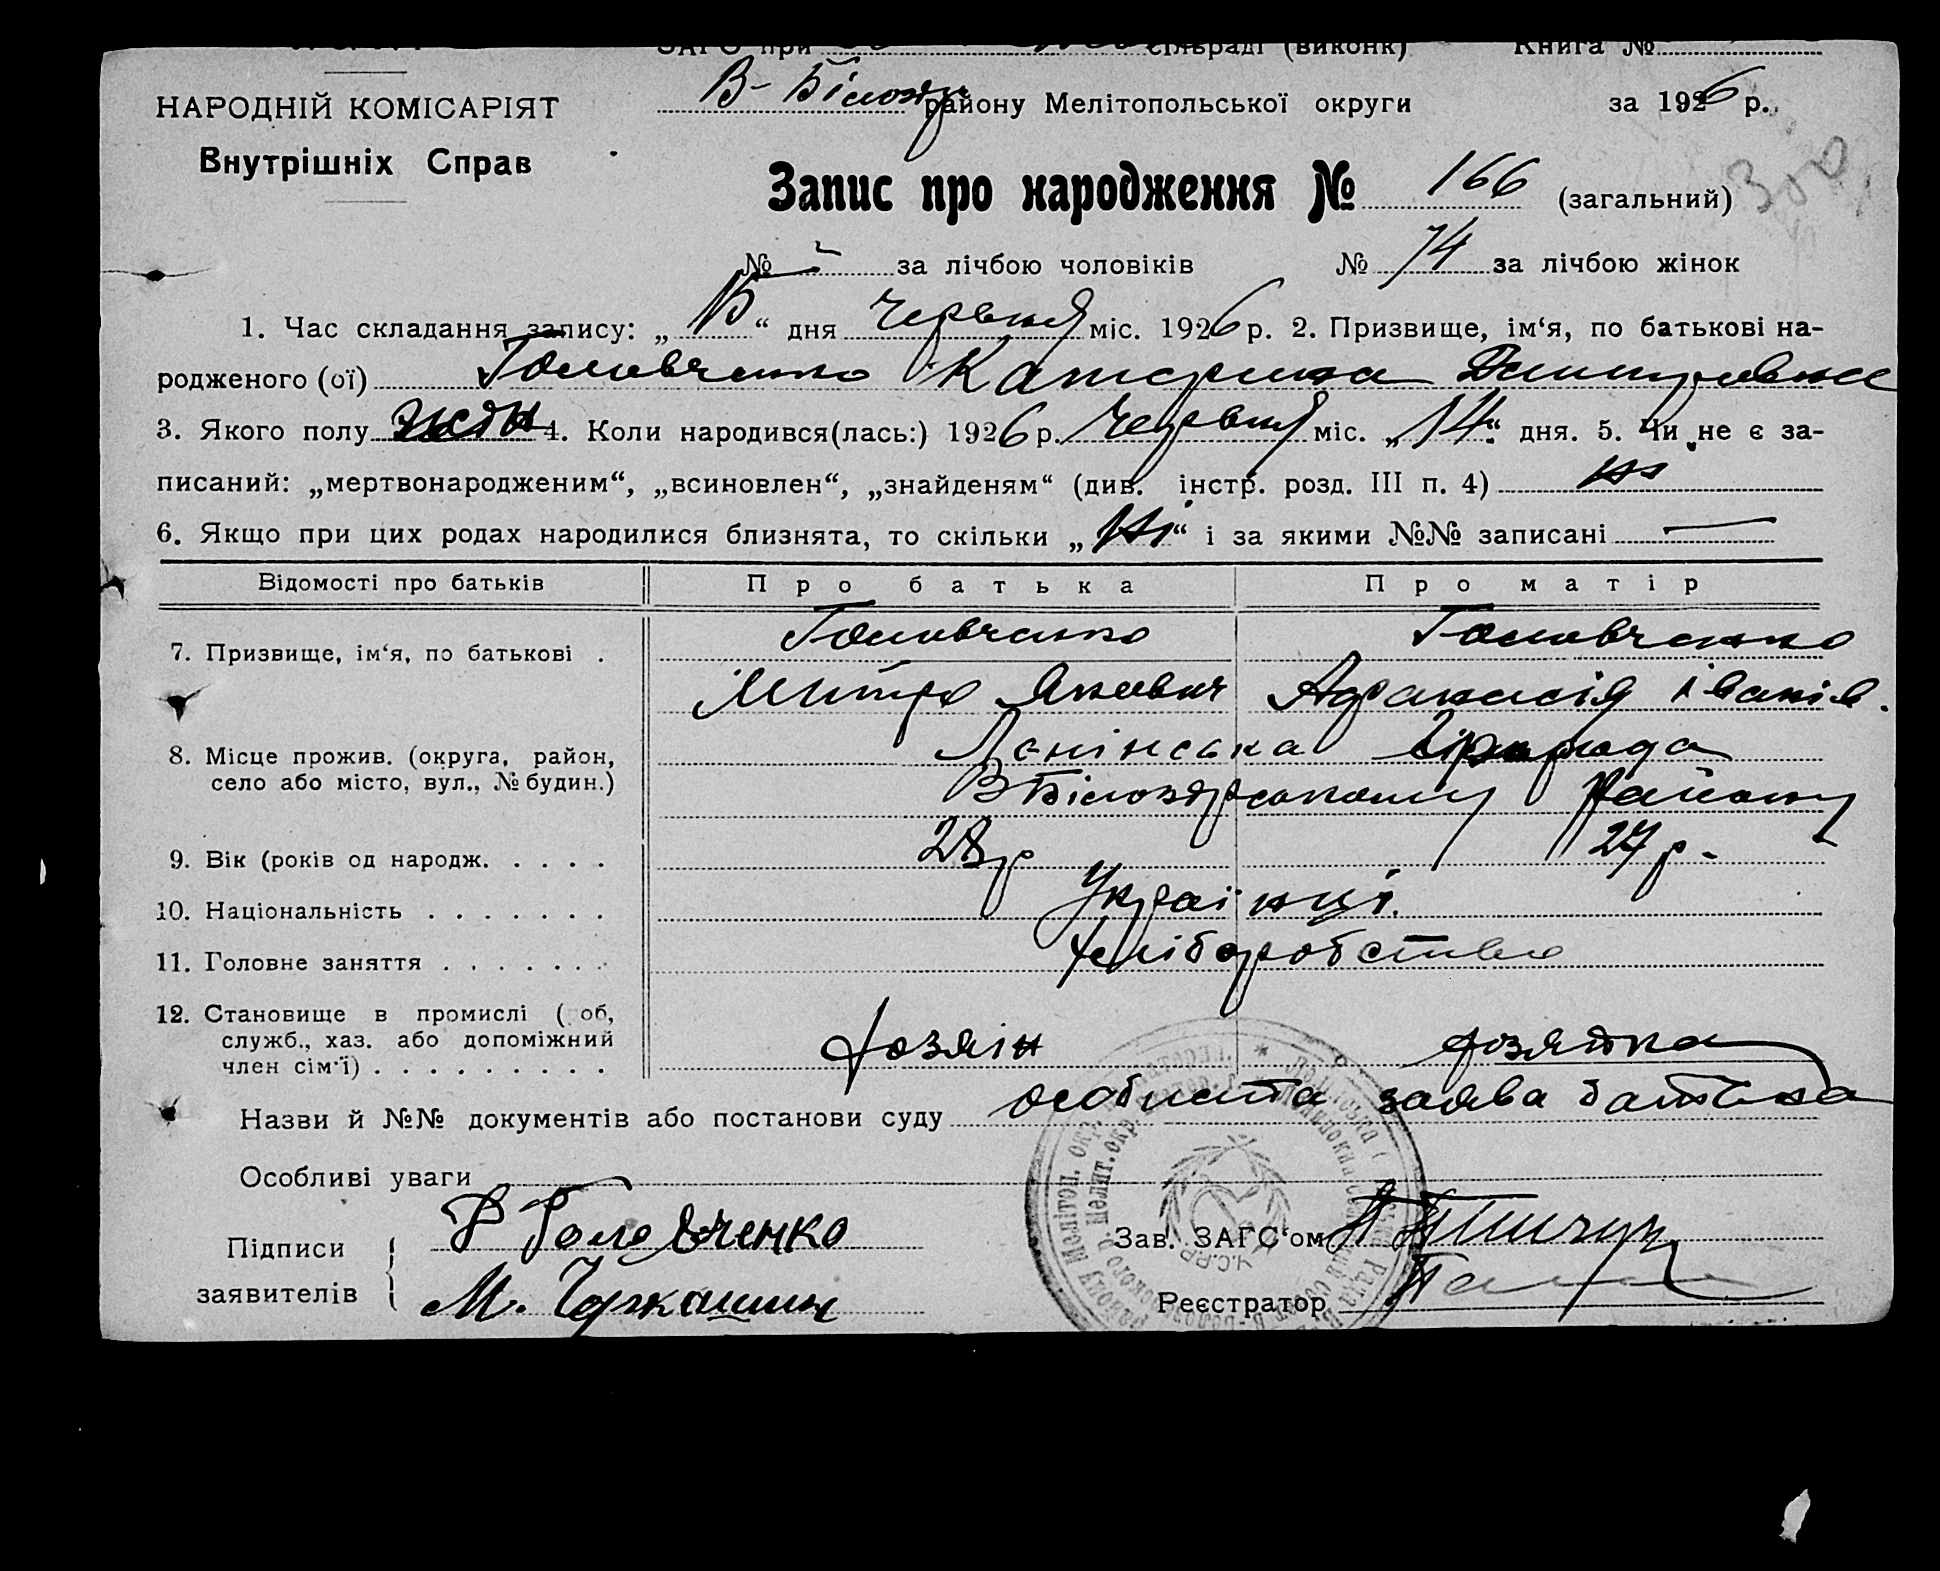 ЗАГС при сільраді (виконк) Книга №
НАРОДНІЙ КОМІСАРІЯТ
В-Білозір району Мелітопольської округи за 1926 р.
Внутрішніх Справ
Запис про народження № 166 (загальний)
300
№ - за лічбою чоловіків № 74 за лічбою жінок
1. Час складання запису: „15“ дня Червня міс. 1926 р. 2. Призвище, ім‘я, по батькові на-
родженого (ої) Головченко Катерина Дмитровна
3. Якого полу жін 4. Коли народився(лась:) 1926 р. Червня міс. „14“ дня. 5. Чи не є за-
писаний: „мертвонародженим“, „всиновлен“, „знайденям“ (див. інстр. розд. III п. 4) ні
6. Якщо при цих родах народилися близнята, то скільки „ні“ і за якими №№ записані —
Відомості про батьків Про батька Про матір
7. Призвище, ім‘я, по батькові . Головченко Головченко
Митро Якович Афанасія Іванів.
8. Місце прожив. (округа, район, Лєнінська
село або місто, вул., № будин.) ВБілозірському Району
9. Вік (років од народж. . . . . 28 р 27 р.
10. Національність . . . . . . . Українці.
11. Головне заняття . . . . . . . хліборобство
12. Становище в промислі ( об,
служб., хаз. або допоміжний хозяін хозяйка
член сім‘ї) . . . . . . . . .
Назви й №№ документів або постанови суду особиста заява батька
Особливі уваги
Підписи Головченко Зав. ЗАГС‘ом
заявителів М. Реєстратор
У.С.Р.Р.